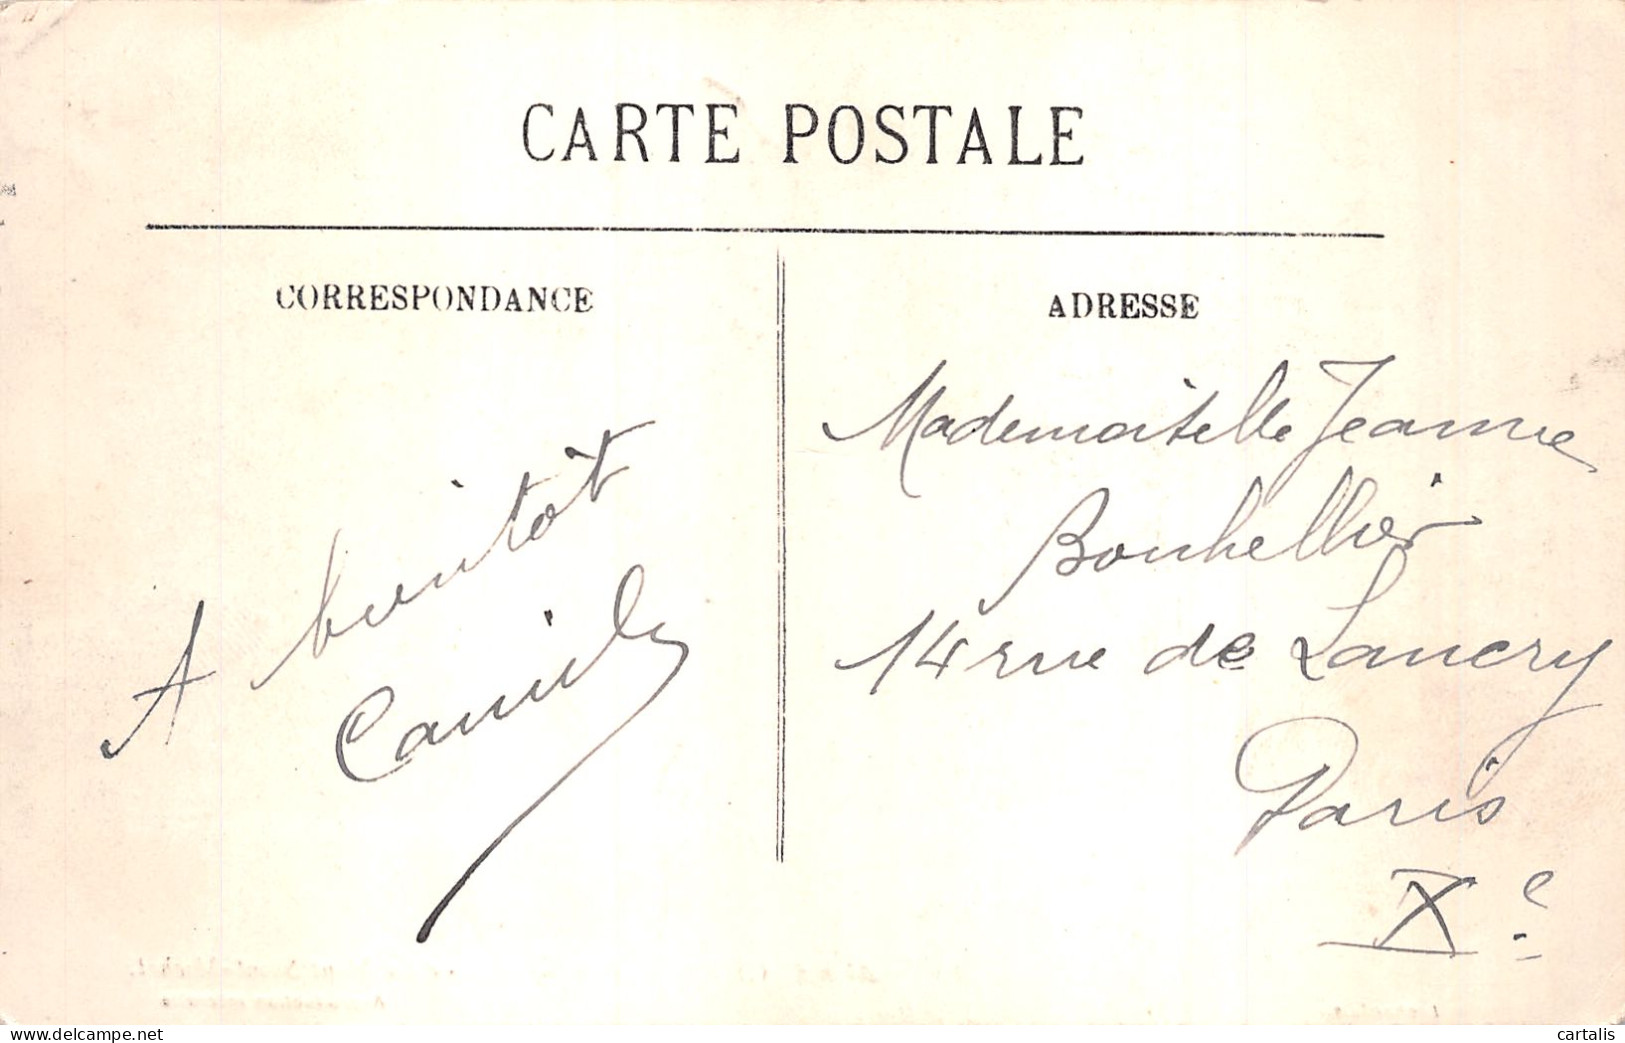 CARTE POSTALE
CORRESPONDANCE
A bientôt
Camille
ADRESSE
Mademoiselle Jeanne
Bonhellier
14 rue de Lancry
Paris
Xe
cartalis